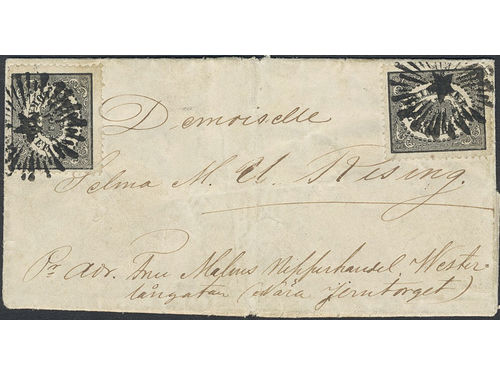 Demoiselle
Selma M. U. Rising.
Pr adr. Fru Malms Nipperhandel, Wester-
långatan (Nära Jerntorget)